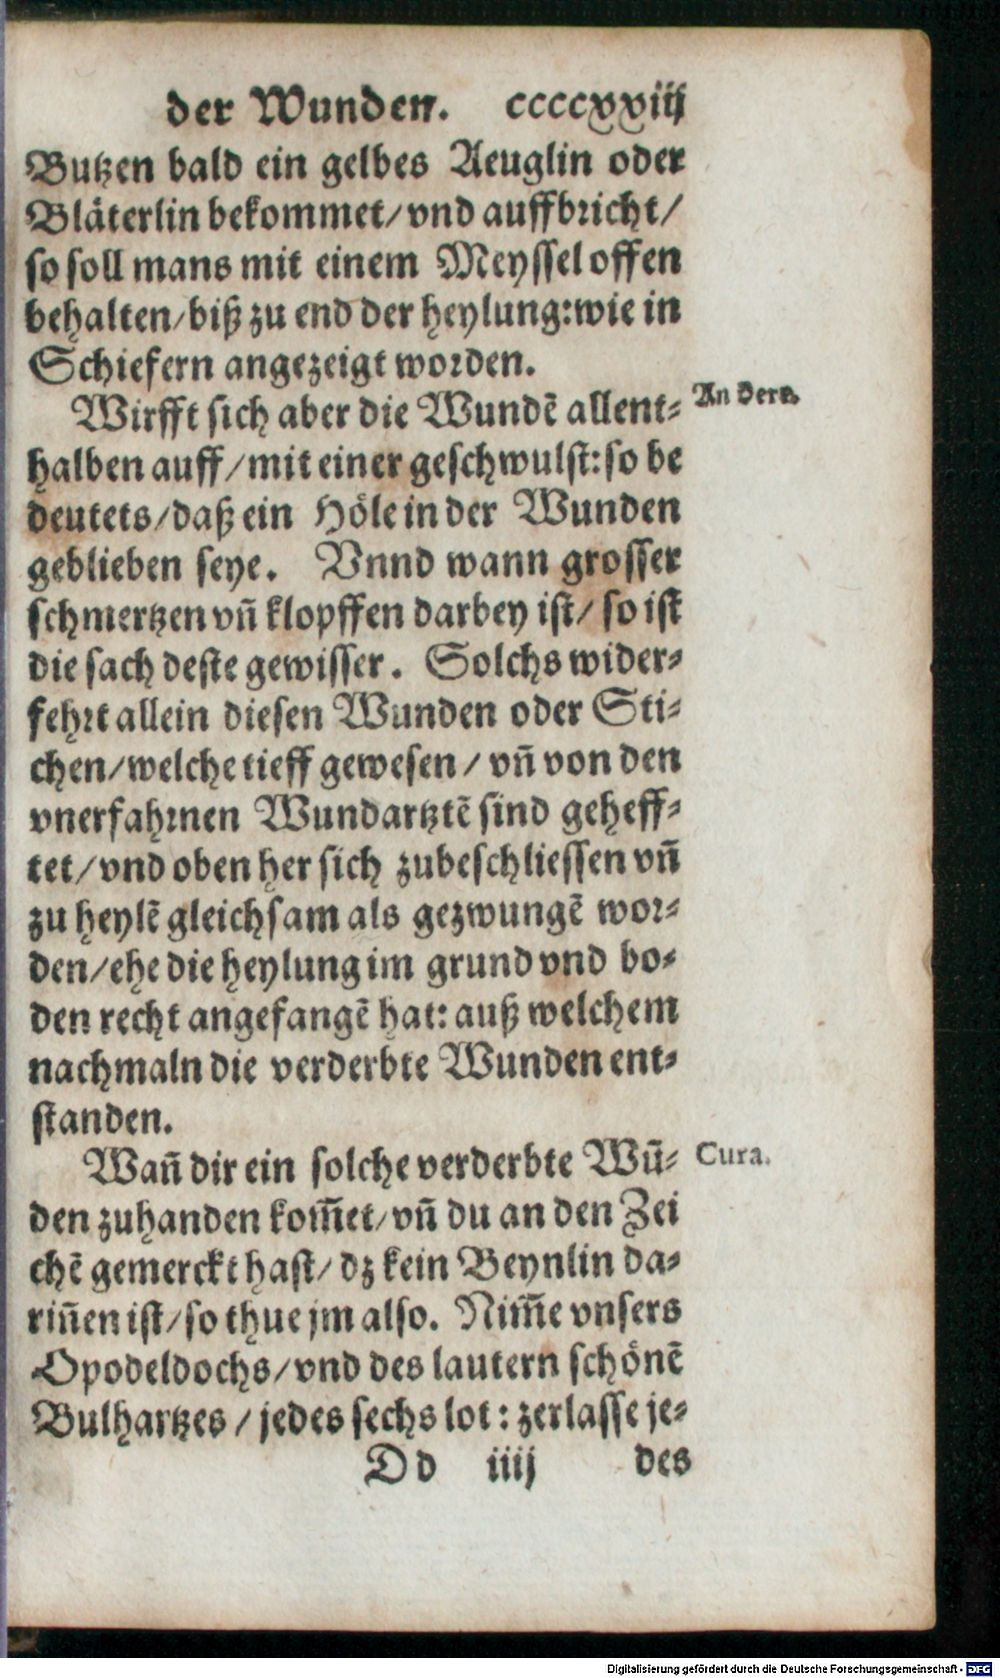 der Wunden. ccccxxiij
Butzen bald ein gelbes Aeuglin oder
Bläterlin bekommet/vnd auffbricht/
so soll mans mit einem Meyssel offen
behalten/biß zu end der heylung:wie in
Schiefern angezeigt worden.
Wirfft sich aber die Wundē allent-
An dere.
halben auff/mit einer geschwulst:so be
deutets/daß ein Höle in der Wunden
geblieben seye. Vnnd wann grosser
schmertzen vn̄ klopffen darbey ist/ so ist
die sach deste gewisser. Solchs wider-
fehrt allein diesen Wunden oder Sti-
chen/welche tieff gewesen/ vn̄ von den
vnerfahrnen Wundartztē sind geheff-
tet/vnd oben her sich zubeschliessen vn̄
zu heylē gleichsam als gezwungē wor-
den/ehe die heylung im grund vnd bo-
den recht angefangē hat: auß welchem
nachmaln die verderbte Wunden ent-
standen.
Wan̄ dir ein solche verderbte Wū-
Cura.
den zuhanden kom̄et/vn̄ du an den Zei
chē gemerckt hast/dz kein Beynlin da-
rin̄en ist/so thue jm also. Nim̄e vnsers
Opodeldochs/vnd des lautern schönē
Bulhartzes/jedes sechs lot: zerlasse je-
Dd iiij des
Digitalisierung gefördert durch die Deutsche Forschungsgemeinschaft - DFG